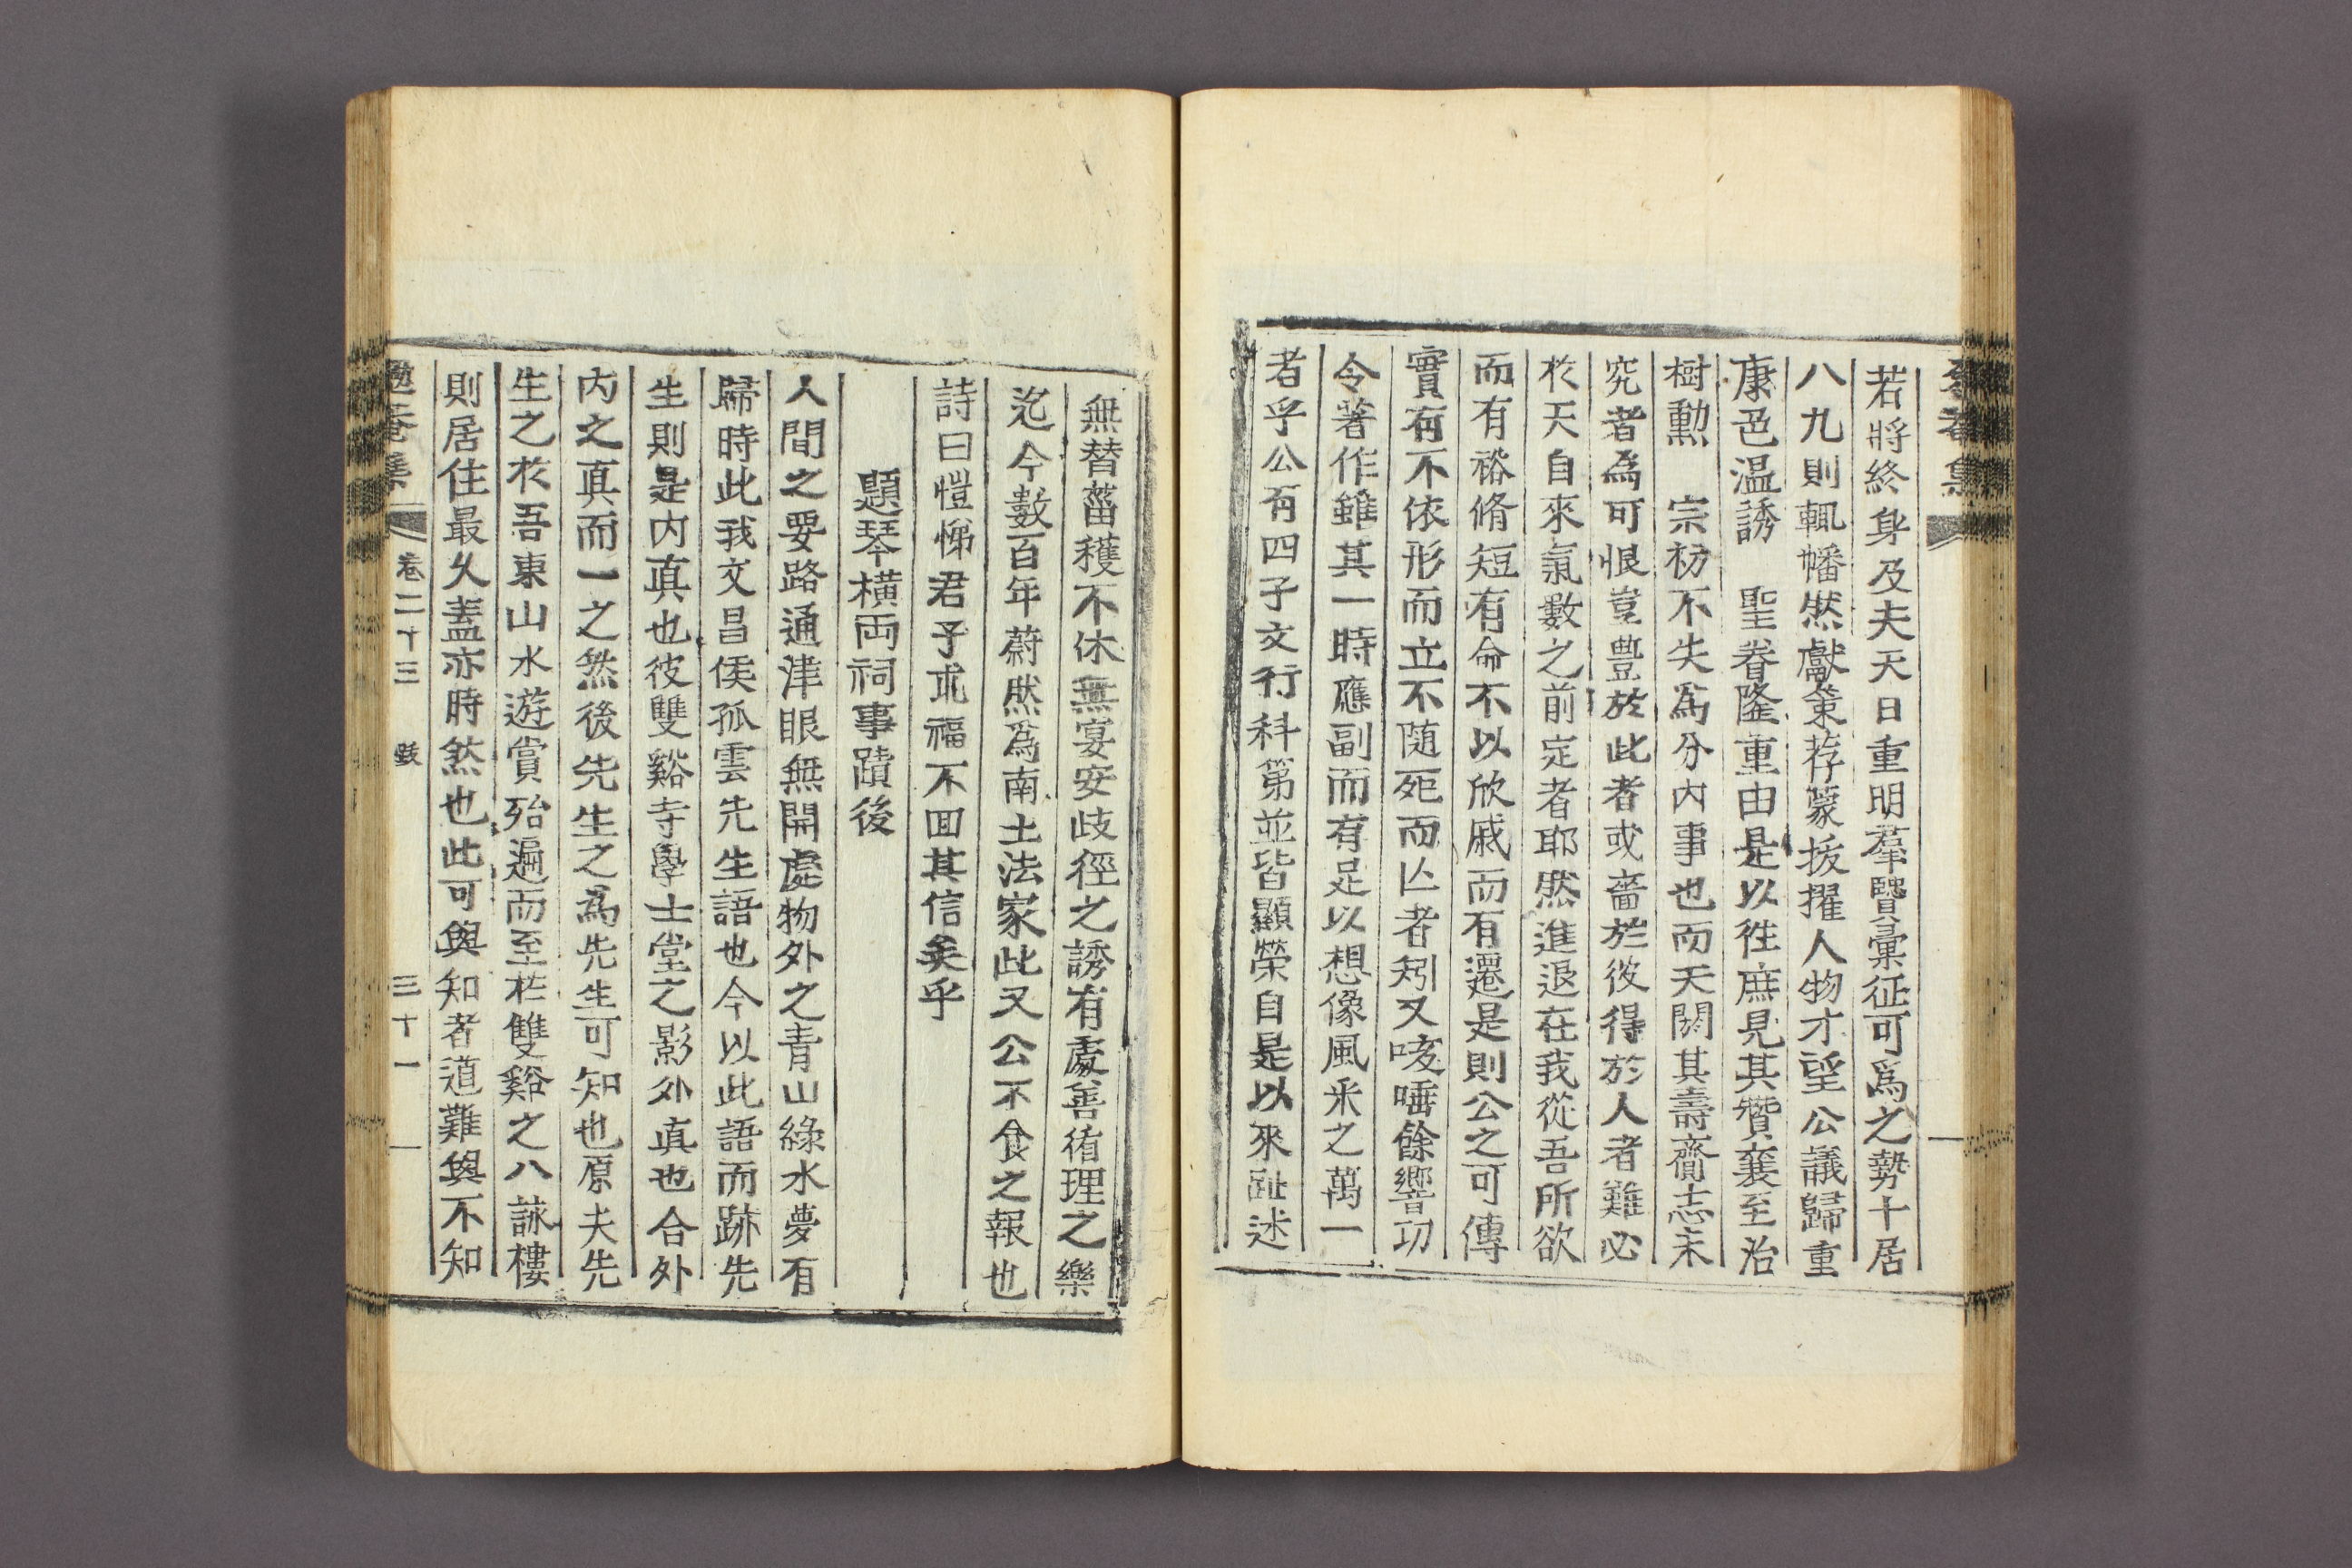 若將終身及夫天日重明羣賢彙征可爲之勢十居
八九則輒幡然獻策荐蒙拔擢人物才望公議歸重
康色溫誘　聖眷隆重由是以徃庶見其贊襄至治
樹勳　宗祊不失爲分內事也而天閼其壽齎志未
究者爲可恨豈豊於此者或嗇於彼得於人者難必
於天自來氣數之前定者耶然進退在我從吾所欲
而有裕脩短有命不以欣戚而有遷是則公之可傳
實有不依形而立不隨死而亾者矧又咳唾餘響功
令著作雖其一時應副而有足以想像風采之萬一
者乎公有四子文行科第並皆顯榮自是以來趾述
無替菑穫不休無宴安歧徑之誘有處善循理之樂
迄今數百年蔚然爲南土法家此又公不食之報也
詩曰愷悌君子求福不回其信矣乎
題琴橫両祠事蹟後
人間之要路通津眼無開處物外之青山綠水夢有
歸時此我文昌侯孤雲先生語也今以此語而跡先
生則是內真也彼雙谿寺學士堂之影外真也合外
內之真而一之然後先生之爲先生可知也原夫先
生之於吾東山水遊賞殆遍而至於雙谿之八詠樓
則居住最久盖亦時然也此可與知者道難與不知
勉菴集　卷二十三　跋　三十一